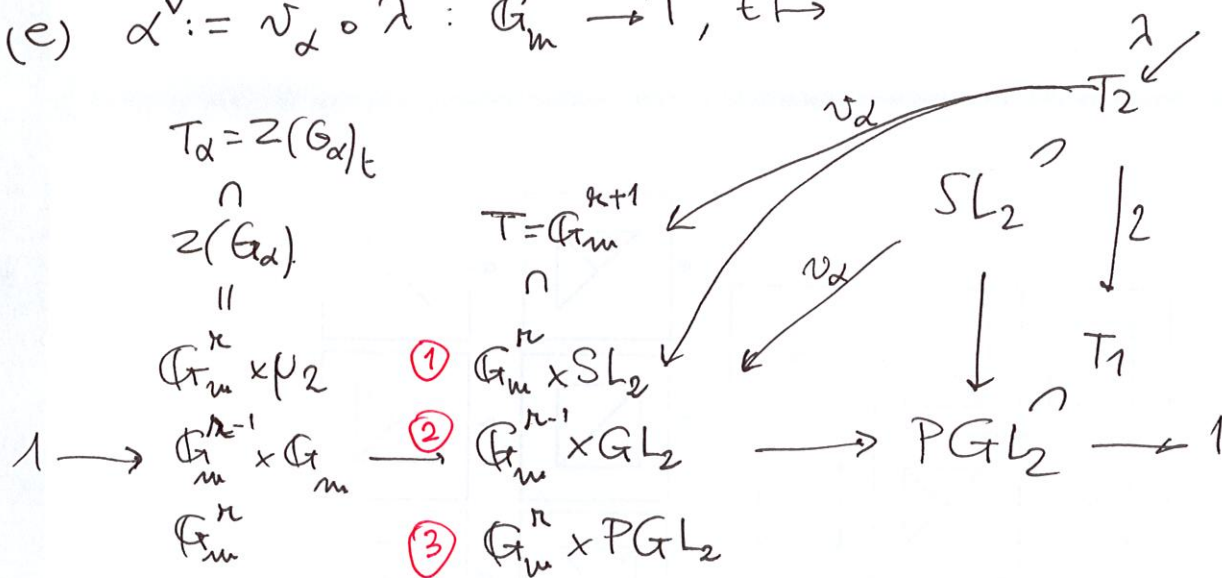 (e) α^∨ := ν_α ∘ λ : 𝔾_m → T, t ↦
λ
T_α = Z(G_α)_t
ν_α
T_2
∩
T = 𝔾_m^{r+1}
SL_2
∩
2
Z(G_α)
∩
ν_α
||
𝔾_m^r × μ_2 ① 𝔾_m^r × SL_2
T_1
∩
1 → 𝔾_m^{r-1} × 𝔾_m → ② 𝔾_m^{r-1} × GL_2 → PGL_2 → 1
𝔾_m^r ③ 𝔾_m^r × PGL_2